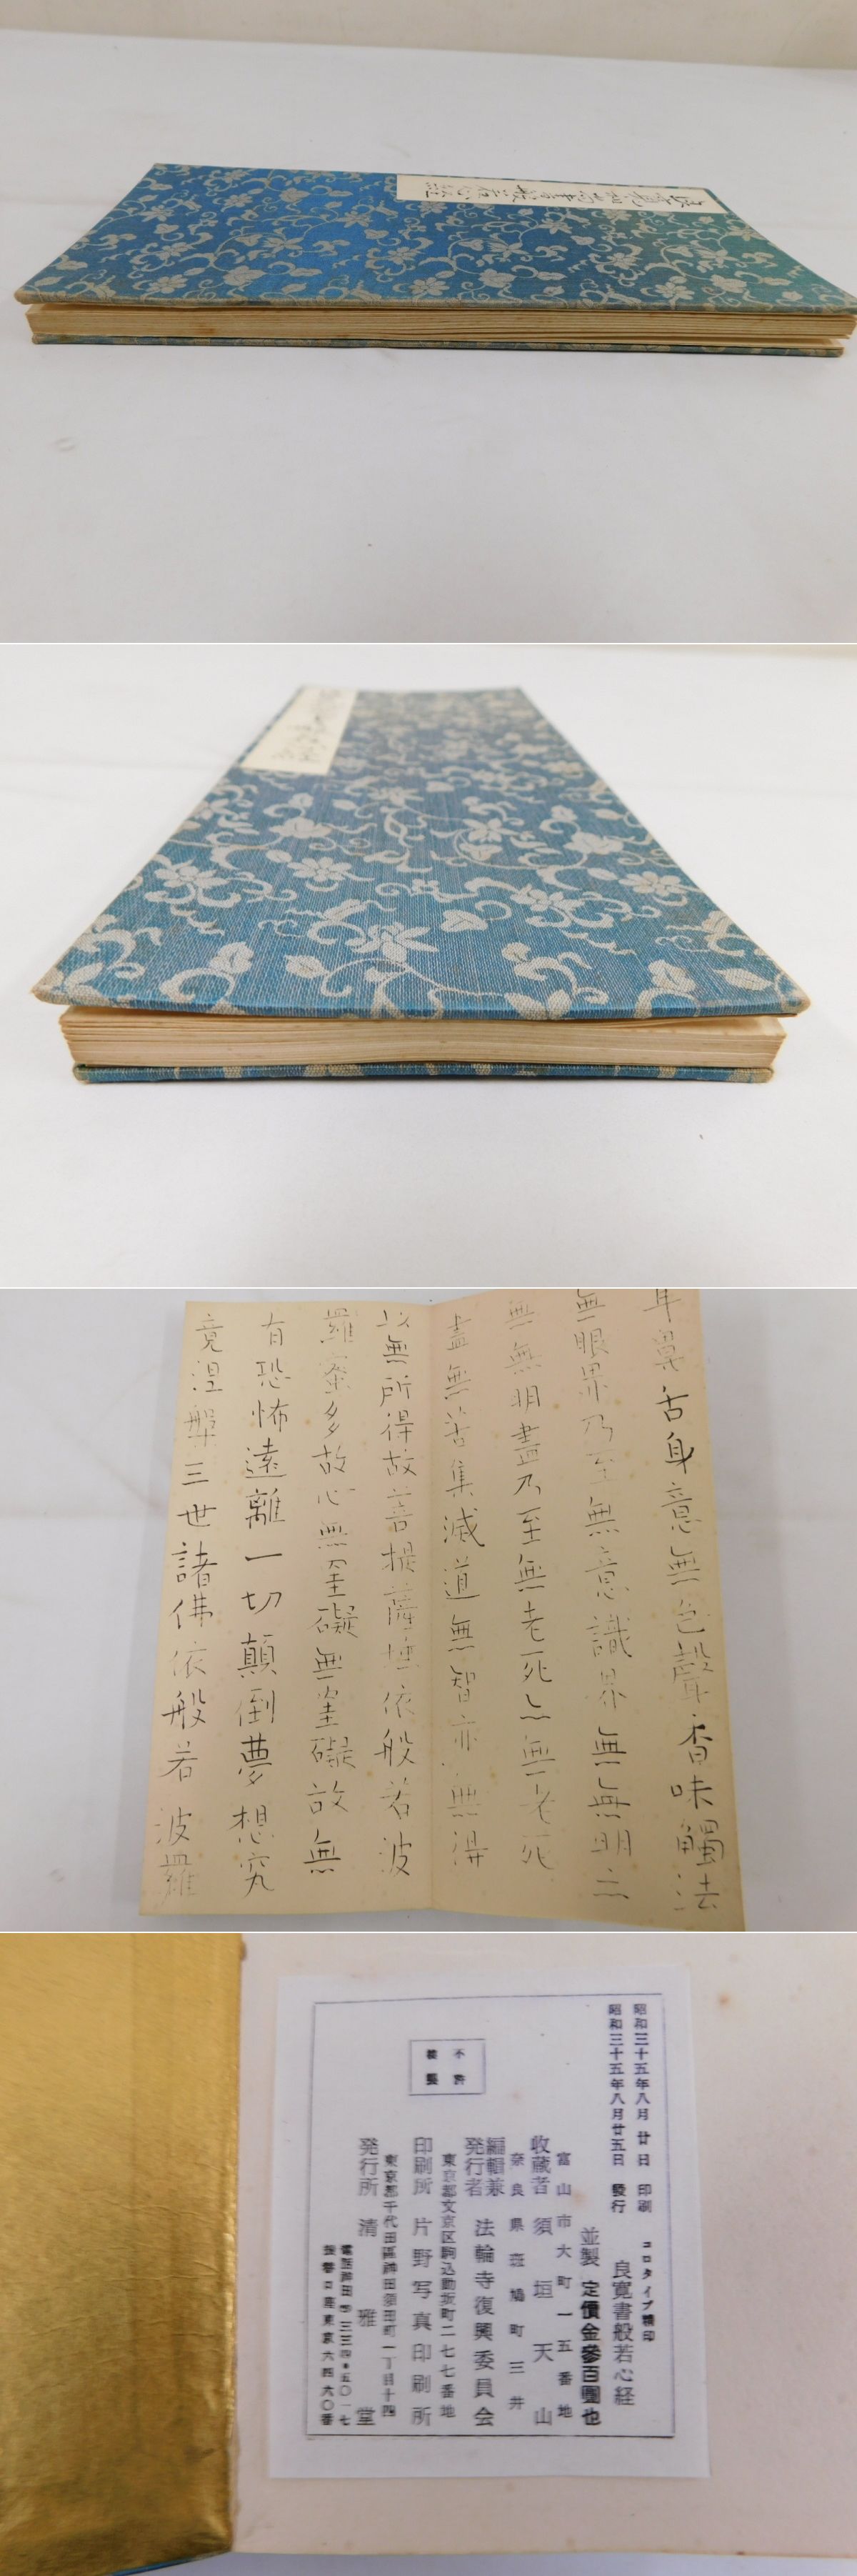 良寛和尚書般若心経
耳鼻舌身意無色聲香味觸法
無眼界乃至無意識界無無明亦
無無明盡乃至無老死亦無老死
盡無苦集滅道無智亦無得
以無所得故菩提薩埵依般若波
羅蜜多故心無罣礙無罣礙故無
有恐怖遠離一切顛倒夢想究
竟涅槃三世諸佛依般若波羅
昭和三十五年八月廿日 印刷
昭和三十五年八月廿五日 發行
コロタイプ精印
良寛書般若心経
並製 定價金參百圓也
富山市大町一五番地
收藏者 須垣天山
奈良県斑鳩町三井
編輯兼
発行者 法輪寺復興委員会
東京都文京区駒込動坂町二七七番地
印刷所 片野写真印刷所
東京都千代田區神田須田町一丁目十四
発行所 清雅堂
不許
複製